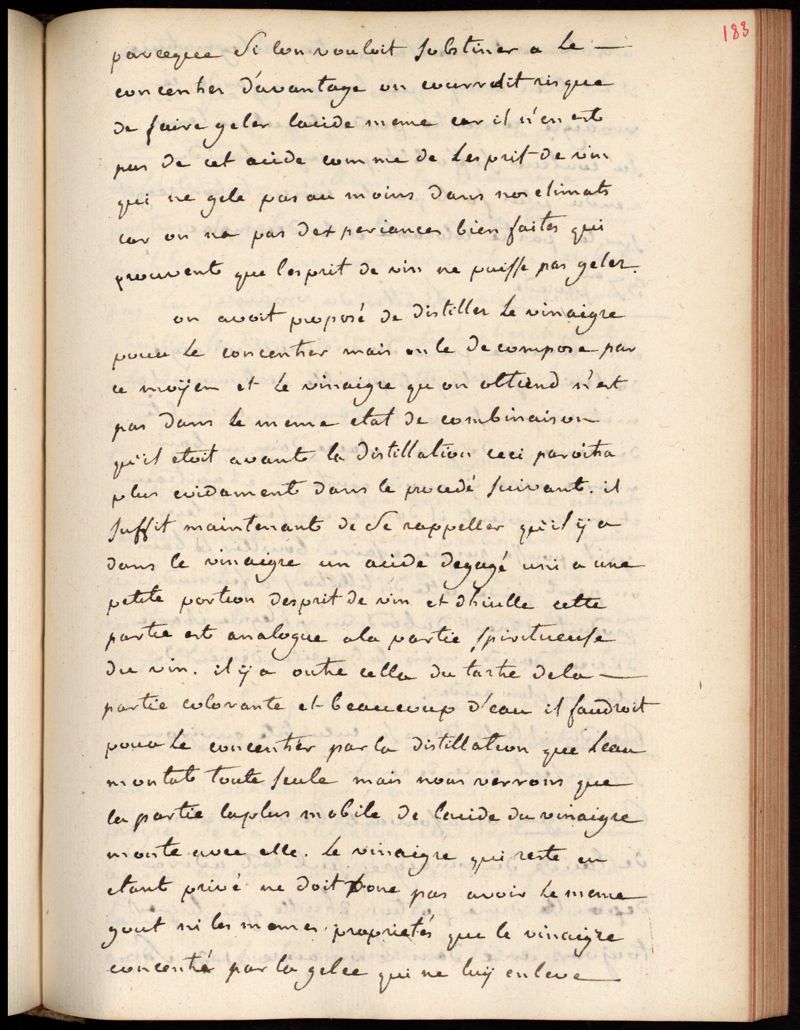 183
parceque si lon vouloit sobstiner a le —
concentrer d'avantage on courroit risque
de faire geler lacide meme car il n'en est
pas de cet acide comme de lesprit de vin
qui ne gele pas au moins dans nos climats
car on na pas dexperiances bien faites qui
prouvent que lesprit de vin ne puisse pas geler.
on avoit proposé de distiller le vinaigre
pour le concentrer mais on le decompose par
ce moÿen et le vinaigre qu'on obtiend n'est
pas dans le meme etat de combinaison
qu'il etoit avant la distillation ceci paroitra
plus evidament dans le procedé suivant. il
suffit maintenant de se rappeller qu'il ÿ a
dans le vinaigre un acide degagé uni a une
petite portion desprit de vin et dhuille cette
partie est analogue a la partie spiritueuse
du vin. il ÿ a outre cella du tartre de la —
partie colorante et beaucoup d'eau il faudroit
pour le concentrer par la distillation que leau
montat toute seule mais nous verrons que
la partie la plus mobile de lacide du vinaigre
monte avec elle. le vinaigre qui reste en
etant privé ne doit donc pas avoir le meme
gout ni les memes proprietés que le vinaigre
concentré par la gelee qui ne luÿ enleve